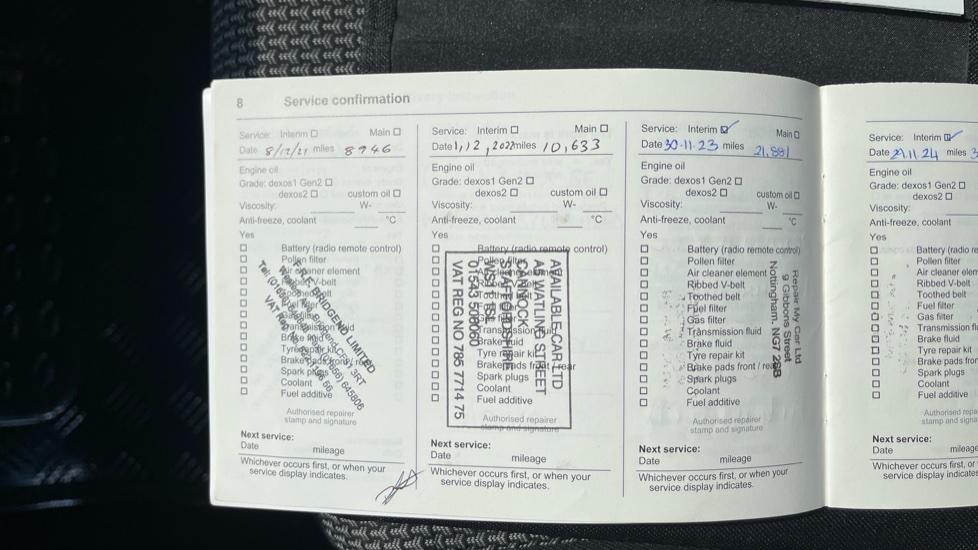 8 Service confirmation
Service: Interim ☐ Main ☐
Date 8/12/21 miles 8946
Engine oil
Grade: dexos1 Gen2 ☐
dexos2 ☐ custom oil ☐
Viscosity: W-
Anti-freeze, coolant °C
Yes
☐ Battery (radio remote control)
☐ Pollen filter
☐ Air cleaner element
☐ V-belt
☐ belt
☐ filter
☐
☐ Transmission fluid
☐ Brake fluid
☐ Tyre repair kit
☐ Brake pads front / rear
☐ Spark plugs
☐ Coolant
☐ Fuel additive
BRIDGEND LIMITED
3RT
645806
VAT Reg No
Authorised repairer
stamp and signature
Next service:
Date mileage
Whichever occurs first, or when your
service display indicates.
Service: Interim ☐ Main ☐
Date 1,12,2022 miles 10,633
Engine oil
Grade: dexos1 Gen2 ☐
dexos2 ☐ custom oil ☐
Viscosity: W-
Anti-freeze, coolant °C
Yes
☐ Battery (radio remote control)
☐ Pollen filter
☐ Transmission fluid
☐ Brake fluid
☐ Tyre repair kit
☐ Brake pads front / rear
☐ Spark plugs
☐ Coolant
☐ Fuel additive
AVAILABLE CAR LTD
A5 WATLING STREET
CANNOCK
STAFFORDSHIRE
01543 506060
VAT REG NO 785 7714 75
Authorised repairer
stamp and signature
Next service:
Date mileage
Whichever occurs first, or when your
service display indicates.
Service: Interim ☑ Main ☐
Date 30-11-23 miles 21,881
Engine oil
Grade: dexos1 Gen2 ☐
dexos2 ☐ custom oil ☐
Viscosity: W-
Anti-freeze, coolant °C
Yes
☐ Battery (radio remote control)
☐ Pollen filter
☐ Air cleaner element
☐ Ribbed V-belt
☐ Toothed belt
☐ Fuel filter
☐ Gas filter
☐ Transmission fluid
☐ Brake fluid
☐ Tyre repair kit
☐ Brake pads front / rear
☐ Spark plugs
☐ Coolant
☐ Fuel additive
Repair My Car Ltd
9 Gibbons Street
Nottingham, NG7 2SB
Authorised repairer
stamp and signature
Next service:
Date mileage
Whichever occurs first, or when your
service display indicates.
Service: Interim ☑
Date 11 24 miles 3
Engine oil
Grade: dexos1 Gen2 ☐
dexos2 ☐
Viscosity:
Anti-freeze, coolant
Yes
☐ Battery (radio re
☐ Pollen filter
☐ Air cleaner elem
☐ Ribbed V-belt
☐ Toothed belt
☐ Fuel filter
☐ Gas filter
☐ Transmission f
☐ Brake fluid
☐ Tyre repair kit
☐ Brake pads fron
☐ Spark plugs
☐ Coolant
☐ Fuel additive
Authorised repa
stamp and signa
Next service:
Date mileage
Whichever occurs first, or wh
service display indicates.